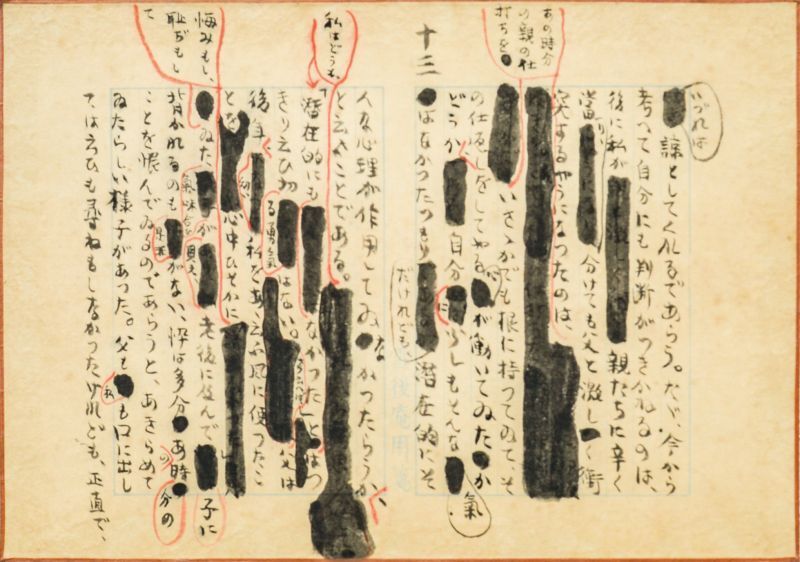 いづれは
諒としてくれるであらう。たゞ、今から
考へて自分にも判断がつきかねるのは、
後に私が親たちに辛く
當り分けても父と激しく衝
突するやうになつたのは、
あの時分
の親の仕
打ちを
いさゝかでも根に持つてゐて、そ
の仕返しをしてやる心が働いてゐたか
どうか、自分に少しもそんな氣
はなかつたつもりだけれども、潜在的にそ
十三
んな心理が作用してゐなかつたらうか、
と云ふことである。
私はどうも、
「潜在的にもなかつた」とはつ
きり云ひ切る勇氣はない。父は
後年、私をあゝ云ふ風に使つたこ
とを心中ひそかに
悔みもし、
恥ぢもし
て
ゐた、が老後に及んで子に
背かれるのも是非がない、忰は多分あの時分の
ことを恨んでゐるのであらうと、あきらめて
ゐたらしい様子があつた。父も私も口に出し
ては云ひも尋ねもしなかつたけれども、正直で、